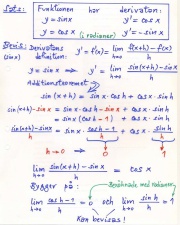 Sats: Funktionen har derivatan:
y = sin x y' = cos x
y = cos x (i radianer) y' = -sin x
Bevis: Derivatans definition: f'(x) = lim h→0 f(x+h) - f(x) / h
(sin x)
y = sin x ⇒ y' = lim h→0 sin(x+h) - sin x / h
Additionsteoremet:
sin(x+h) = sin x · cos h + cos x · sin h
sin(x+h) - sin x = sin x · cos h - sin x + cos x · sin h
= sin x (cos h - 1) + cos x · sin h
sin(x+h) - sin x / h = sin x · cos h - 1 / h + cos x · sin h / h
h → 0 ⇒ 0 1
lim h→0 sin(x+h) - sin x / h = cos x
Bygger på: Beroende med radianer
lim h→0 cos h - 1 / h = 0 och lim h→0 sin h / h = 1
Kan bevisas!